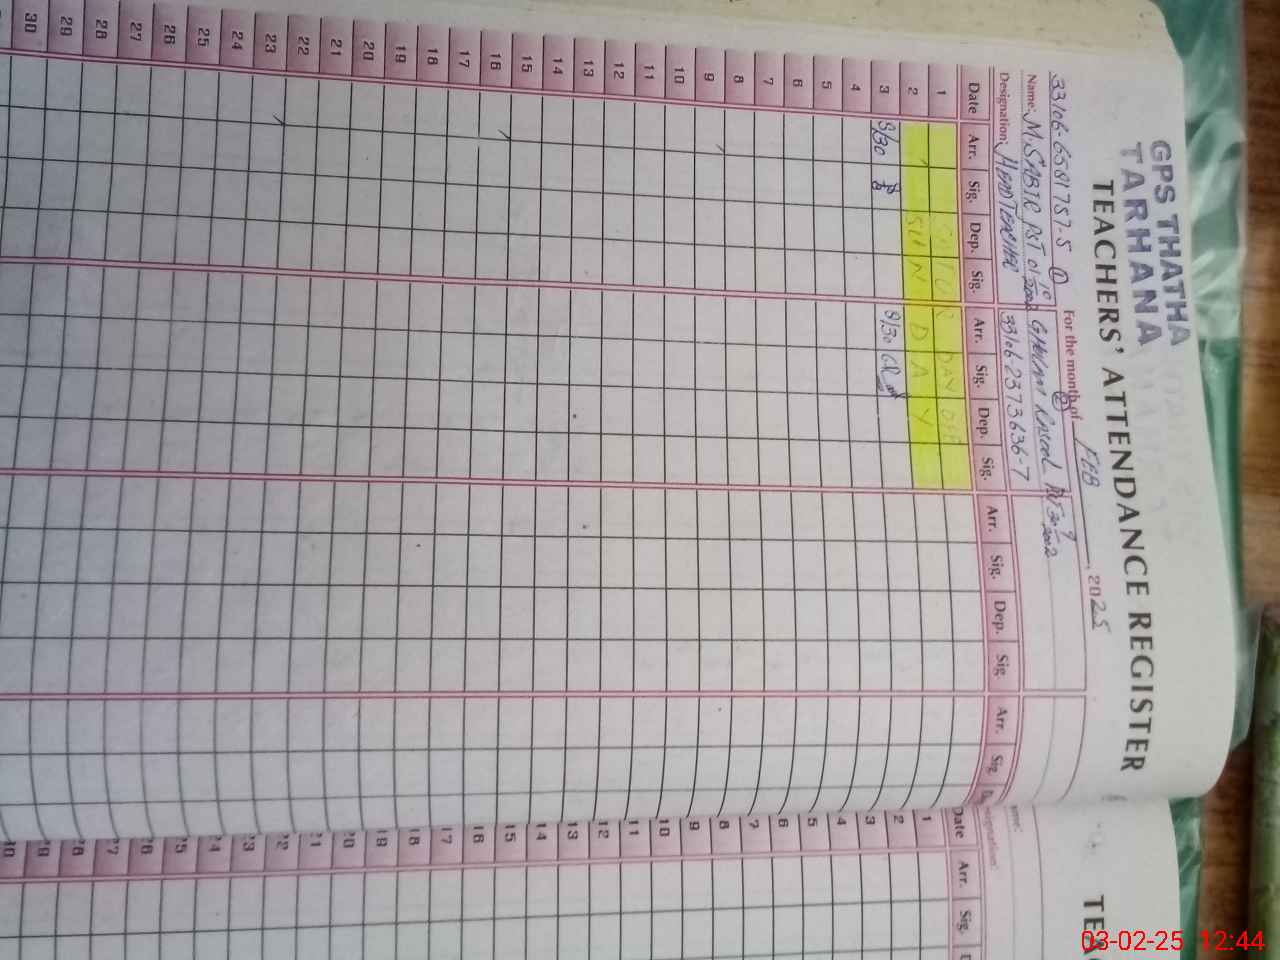 GPS THATHA
TARHANA
TEACHERS' ATTENDANCE REGISTER
For the month of FEB, 2025
33106-6581787-5 ①
Name: M. SABIR PST
②
GHULAM RASOOL PST
Designation: HEAD TEACHER
33106 2373636-7
Date Arr. Sig. Dep. Sig. Arr. Sig. Dep. Sig. Arr. Sig. Dep. Sig. Arr. Sig.
1 DAY OFF
2 SUNDAY
3 8/30 8/30
4
5
6
7
8
9
10
11
12
13
14
15
16
17
18
19
20
21
22
23
24
25
26
27
28
29
30
Date Arr. Sig.
1
2
3
4
5
6
7
8
9
10
11
12
13
14
15
16
17
18
19
20
03-02-25 12:44